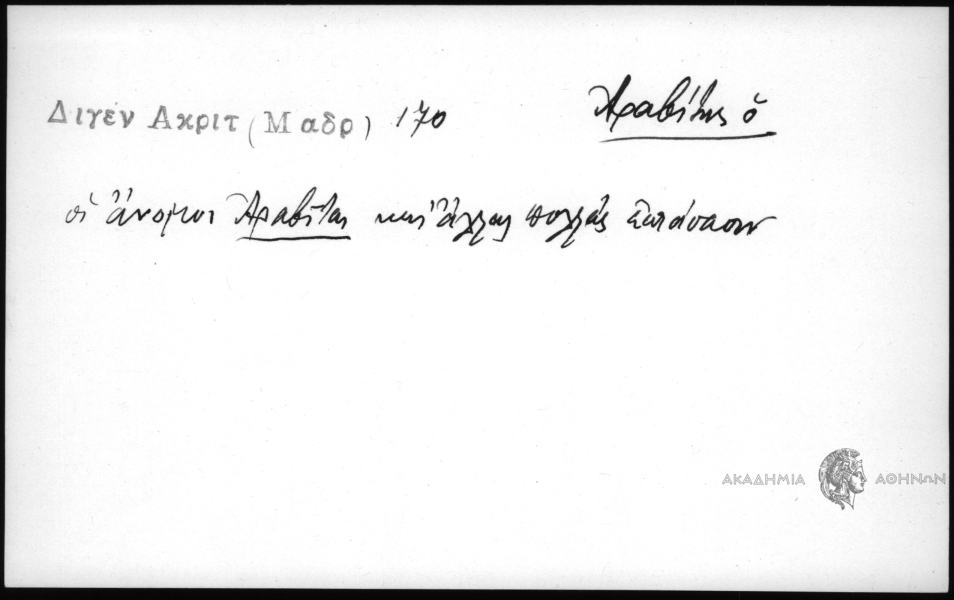 Διγέν Ακριτ (Μαδρ) 170
Ἀραβίτης ὁ
οἱ ἄνομοι Ἀραβῖτες καὶ ἄλλας πολλὰς ἐσπάσασιν
ΑΚΑΔΗΜΙΑ ΑΘΗΝΩΝ